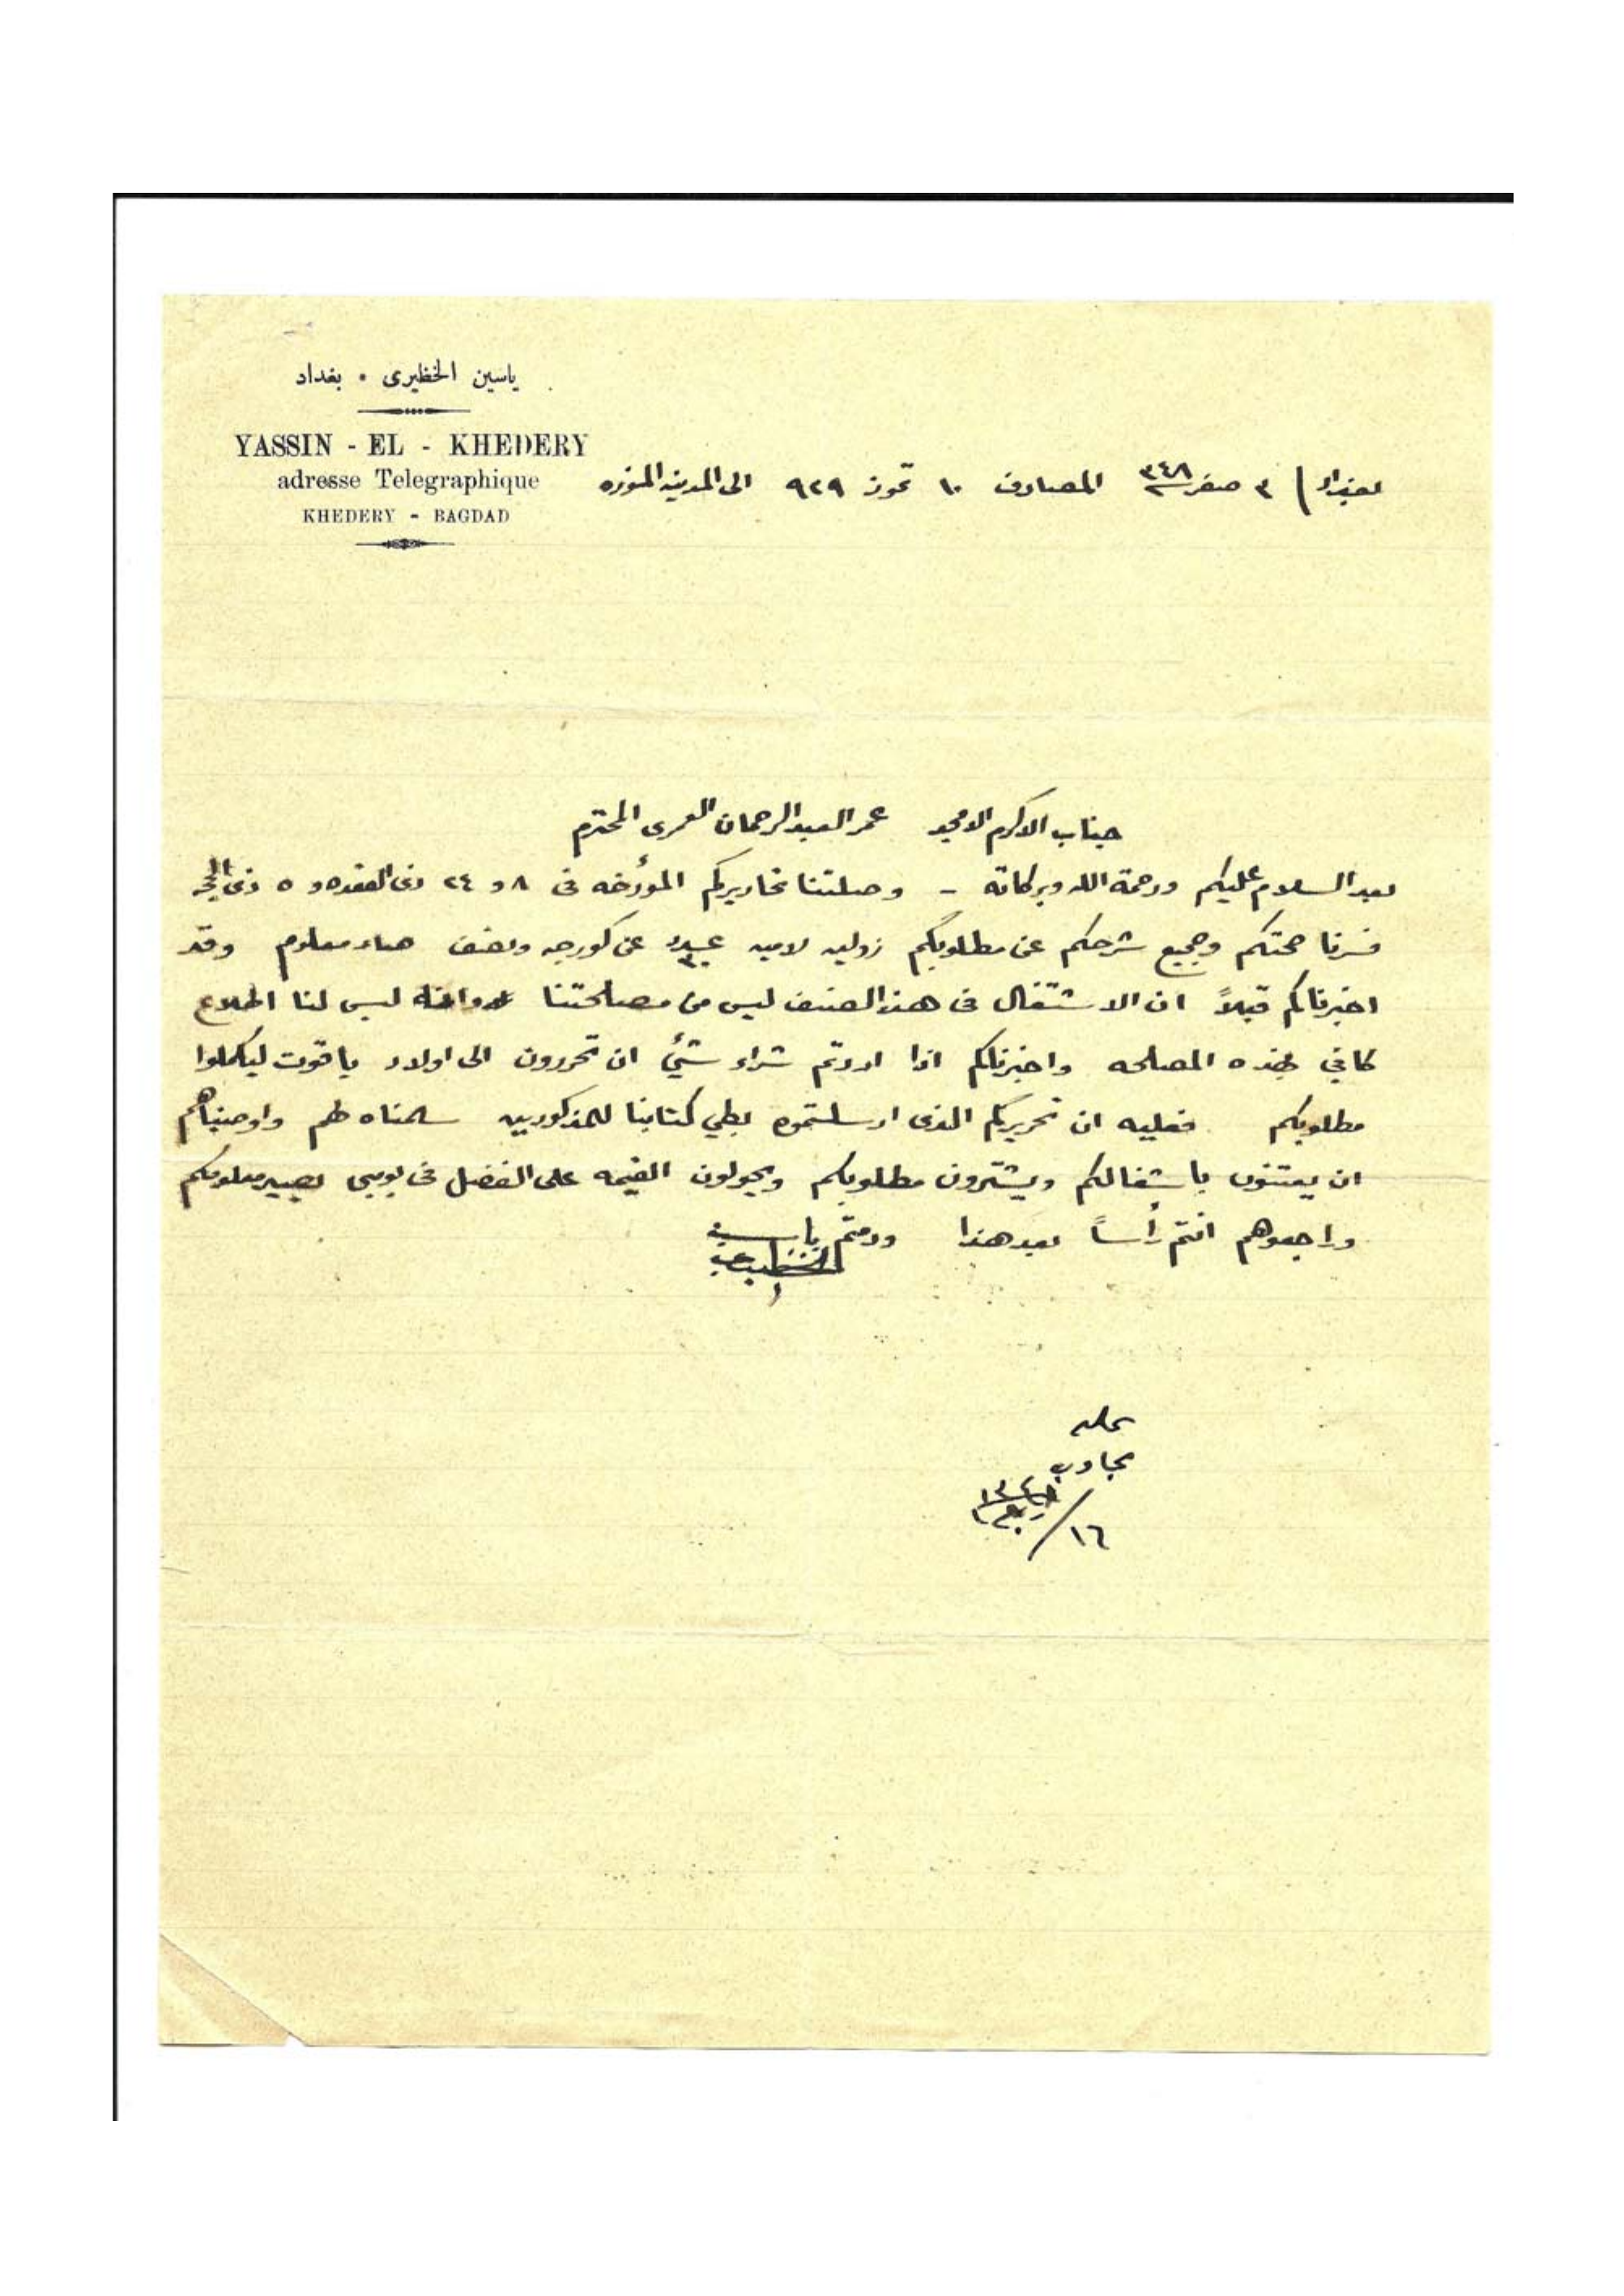 ياسين الخظيرى • بغداد
YASSIN - EL - KHEDERY
adresse Telegraphique
KHEDERY - BAGDAD
بغداد / ٣ صفر ٣٤٨ المصادف ١٠ تموز ٩٢٩ الى المدينه المنوره
جناب الاكرم الامجد عمر العبد الرحمان العمرى المحترم
بعد السلام عليكم ورحمة الله وبركاته - وصلتنا تحاريركم المؤرخه فى ٨ و ٢٤ ذى القعده و ٥ ذى الحجه
فسرنا صحتكم وجميع شرحكم عن مطلوبكم عن كورجه ونصف صار معلوم وقد
اخبرناكم قبلاً ان الاشتغال فى هذا الصنف ليس من مصلحتنا وانه ليس لنا اطلاع
كافي بهذه المصلحه واخبرناكم اذا اردتم شراء شيئ ان تحررون الى اولاد ياقوت ليكملوا
مطلوبكم فعليه ان تحريركم الذى ارسلتموه بطي كتابنا للمذكورين سلمناه لهم واوصيناهم
ان يعتنون باشغالكم ويشترون مطلوبكم ويحولون القيمه على الفضل فى بومبى يصير معلومكم
وراجعوهم انتم رأساً بعد هذا ودمتم ياسين
الخظيرى
يجاوب
١٦ /